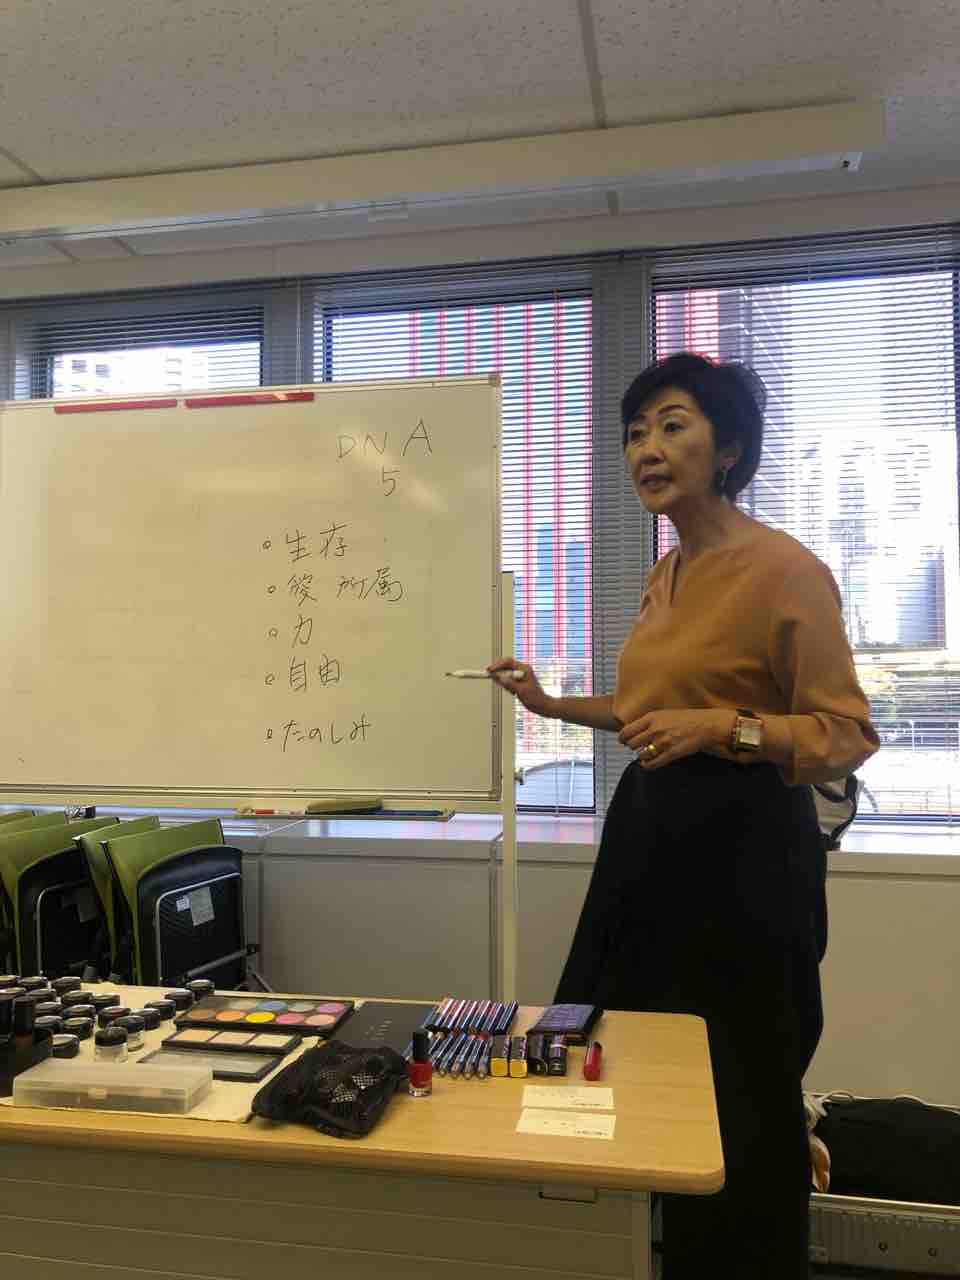 DNA
5
生存
愛 所属
力
自由
たのしみ